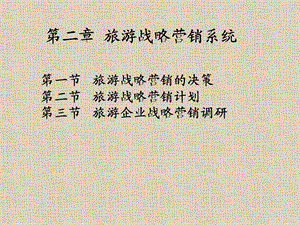 第二章 旅游战略营销系统
第一节 旅游战略营销的决策
第二节 旅游战略营销计划
第三节 旅游企业战略营销调研